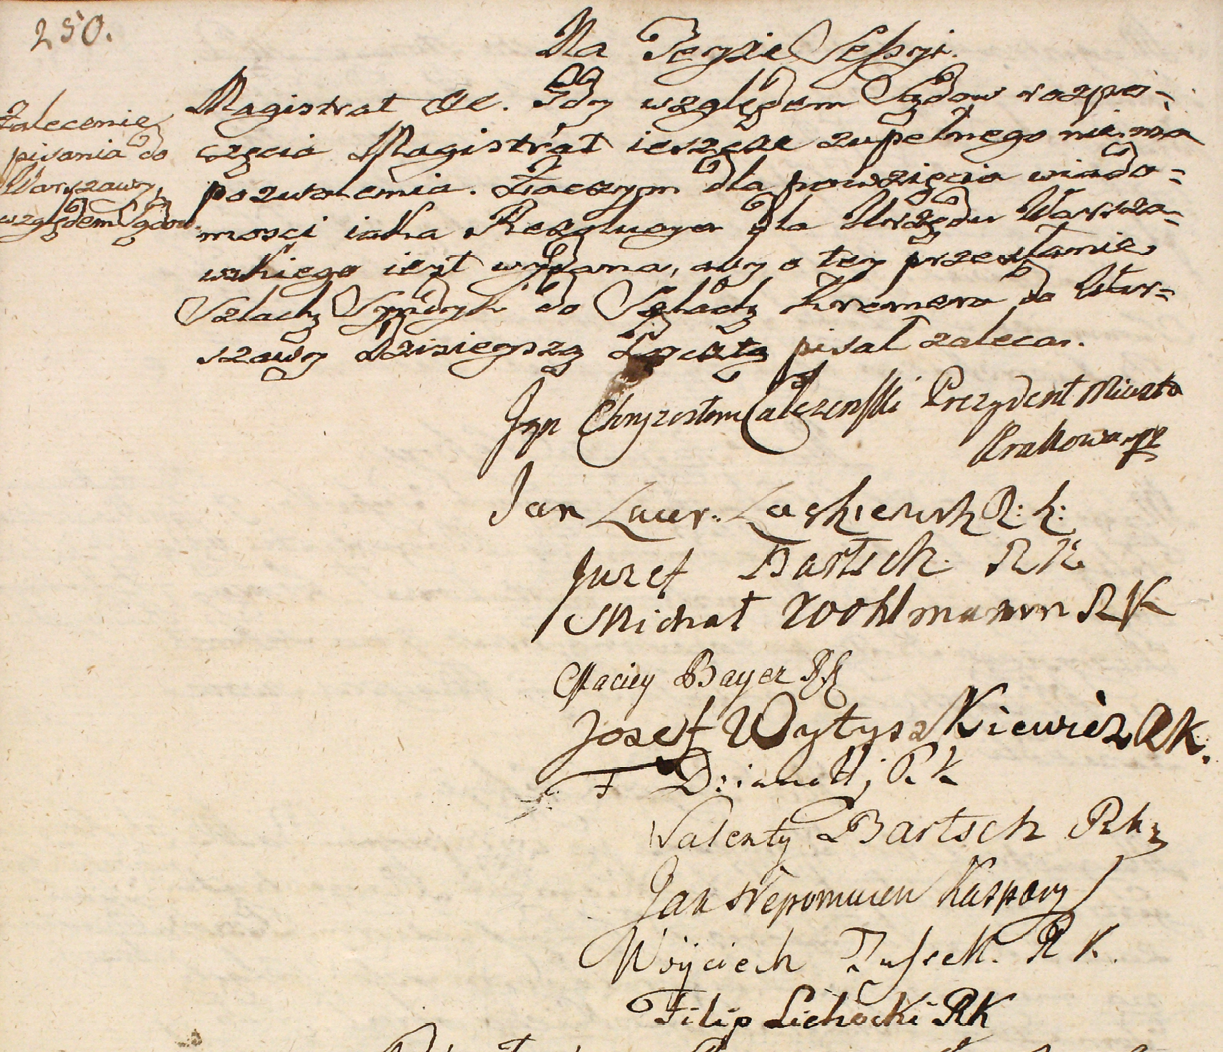 250.
Na Teyże Sessyi.
Zalecenie
pisania do
Warszawy,
względem Sądow.
Magistrat &c. Gdy względem Sądow rozpo-
częcia Magistrat ieszcze zupełnego nie ma
pozwolenia. Zaczym dla powzięcia wiado-
mosci iaka Rezolucya dla Urzędu Warsza-
wskiego iest wydana, aby o tey przesłanie
Szlach: Syndyk do Szlach: Kremera do War-
szawy dzisieyszą Pocztą pisał zaleca.
Jan Chryzostom Prezydent Miasta
Krakowa mp
Jan Lawr. Laskiewicz R: K:
Jozef Bartsch RK
Michał Wohlmann RK
Maciey Bayer RK
Jozef Wytyszkiewicz RK.
F RK
Walenty Bartsch RK
Jan Nepomucen Kaspary
Woyciech R K.
Filip Lichocki RK